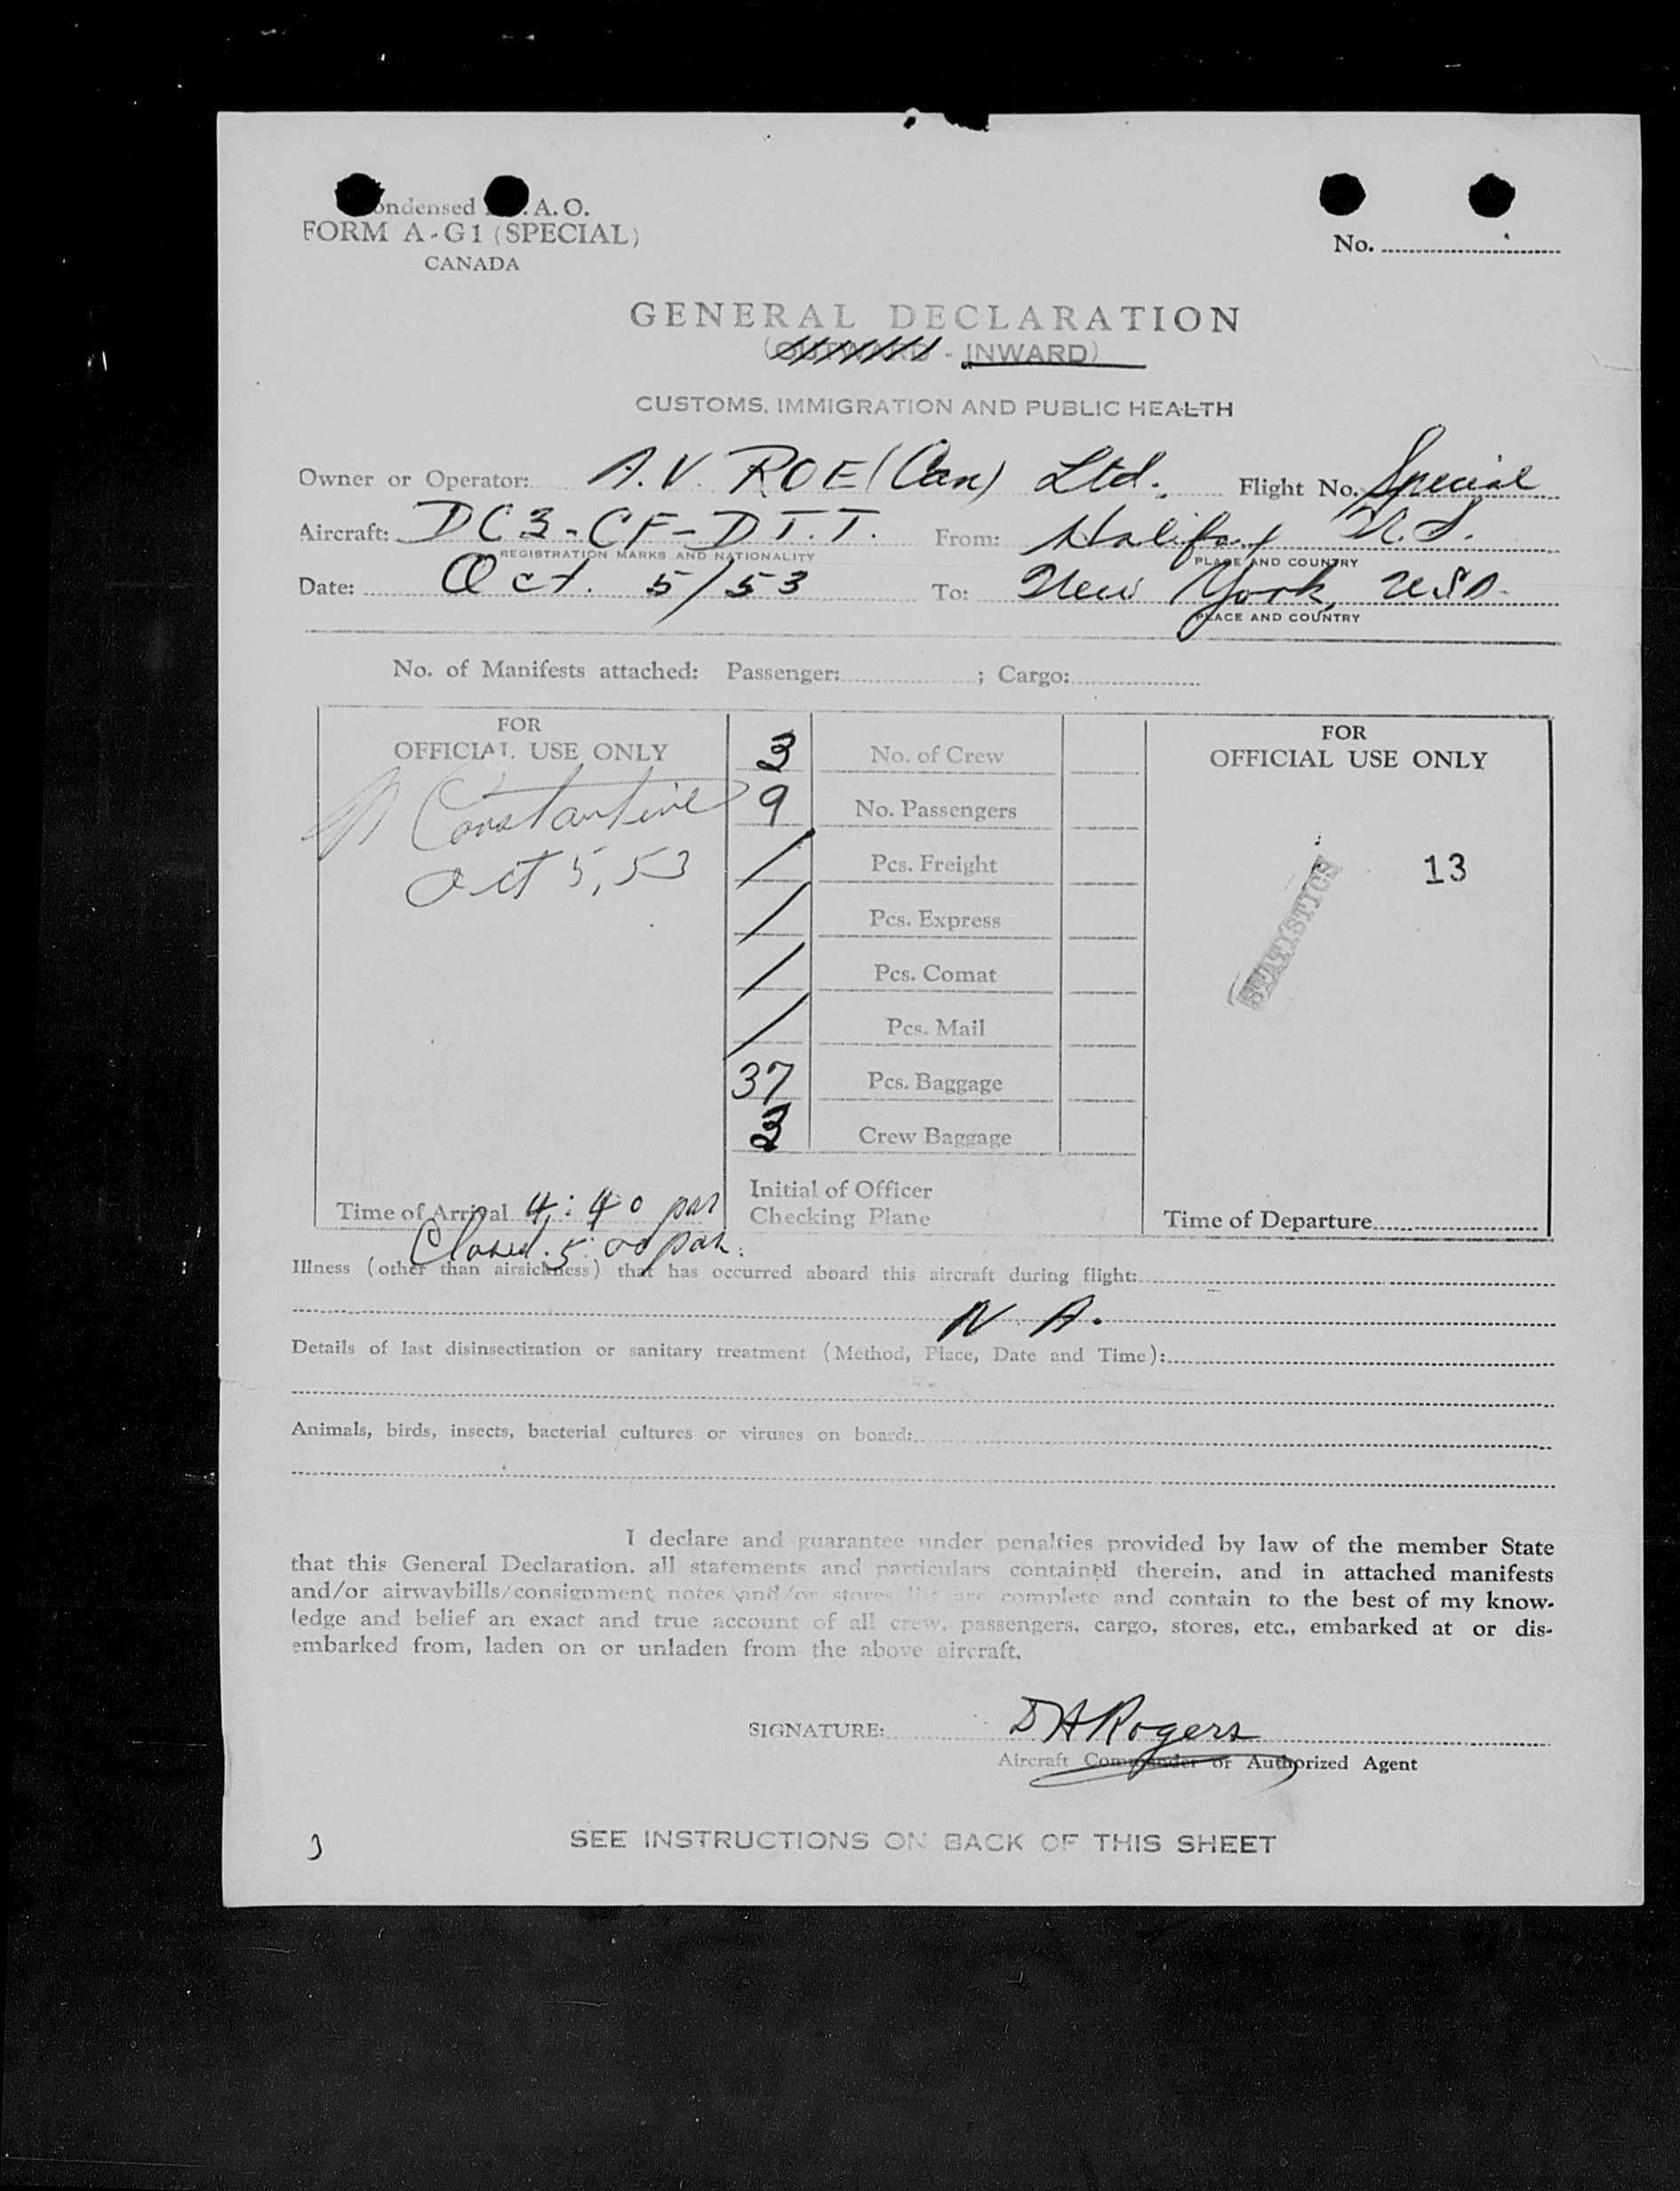 ondensed . A. O.
FORM A-G1 (SPECIAL)
CANADA
No.
GENERAL DECLARATION
(OUTWARD - INWARD)
CUSTOMS, IMMIGRATION AND PUBLIC HEALTH
Owner or Operator: A.V. ROE (Can) Ltd. Flight No. Special
Aircraft: DC3-CF-D.T.T. From: Halifax N.S.
REGISTRATION MARKS AND NATIONALITY PLACE AND COUNTRY
Date: Oct. 5/53 To: New York, USA.
PLACE AND COUNTRY
No. of Manifests attached: Passenger: ; Cargo:
FOR
OFFICIAL USE ONLY
Constantine
Oct 5, 53
3 No. of Crew
9 No. Passengers
/ Pcs. Freight
/ Pcs. Express
/ Pcs. Comat
/ Pcs. Mail
37 Pcs. Baggage
3 Crew Baggage
FOR
OFFICIAL USE ONLY
13
STATISTICS
Time of Arrival 4:40 pm
Closed. 5:00 pm.
Initial of Officer
Checking Plane
Time of Departure
Illness (other than airsickness) that has occurred aboard this aircraft during flight:
N. A.
Details of last disinsectization or sanitary treatment (Method, Place, Date and Time):
Animals, birds, insects, bacterial cultures or viruses on board:
I declare and guarantee under penalties provided by law of the member State
that this General Declaration, all statements and particulars contained therein, and in attached manifests
and/or airwaybills/consignment notes and/or stores list are complete and contain to the best of my know-
ledge and belief an exact and true account of all crew, passengers, cargo, stores, etc., embarked at or dis-
embarked from, laden on or unladen from the above aircraft.
SIGNATURE: D A Rogers
Aircraft Commander or Authorized Agent
SEE INSTRUCTIONS ON BACK OF THIS SHEET